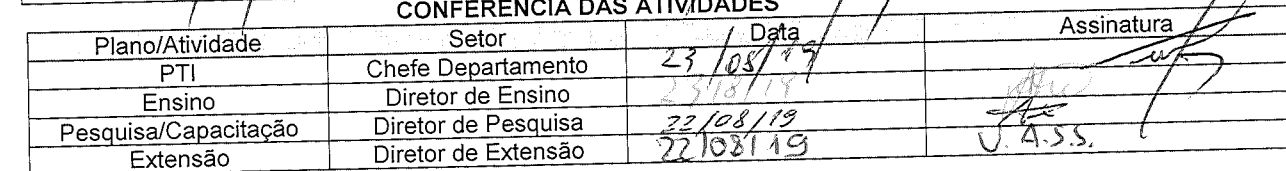 CONFERÊNCIA DAS ATIVIDADES
Plano/Atividade Setor Data Assinatura
PTI Chefe Departamento 23/08/19
Ensino Diretor de Ensino
Pesquisa/Capacitação Diretor de Pesquisa 22/08/19
Extensão Diretor de Extensão 22/08/19 V. A.S.S.